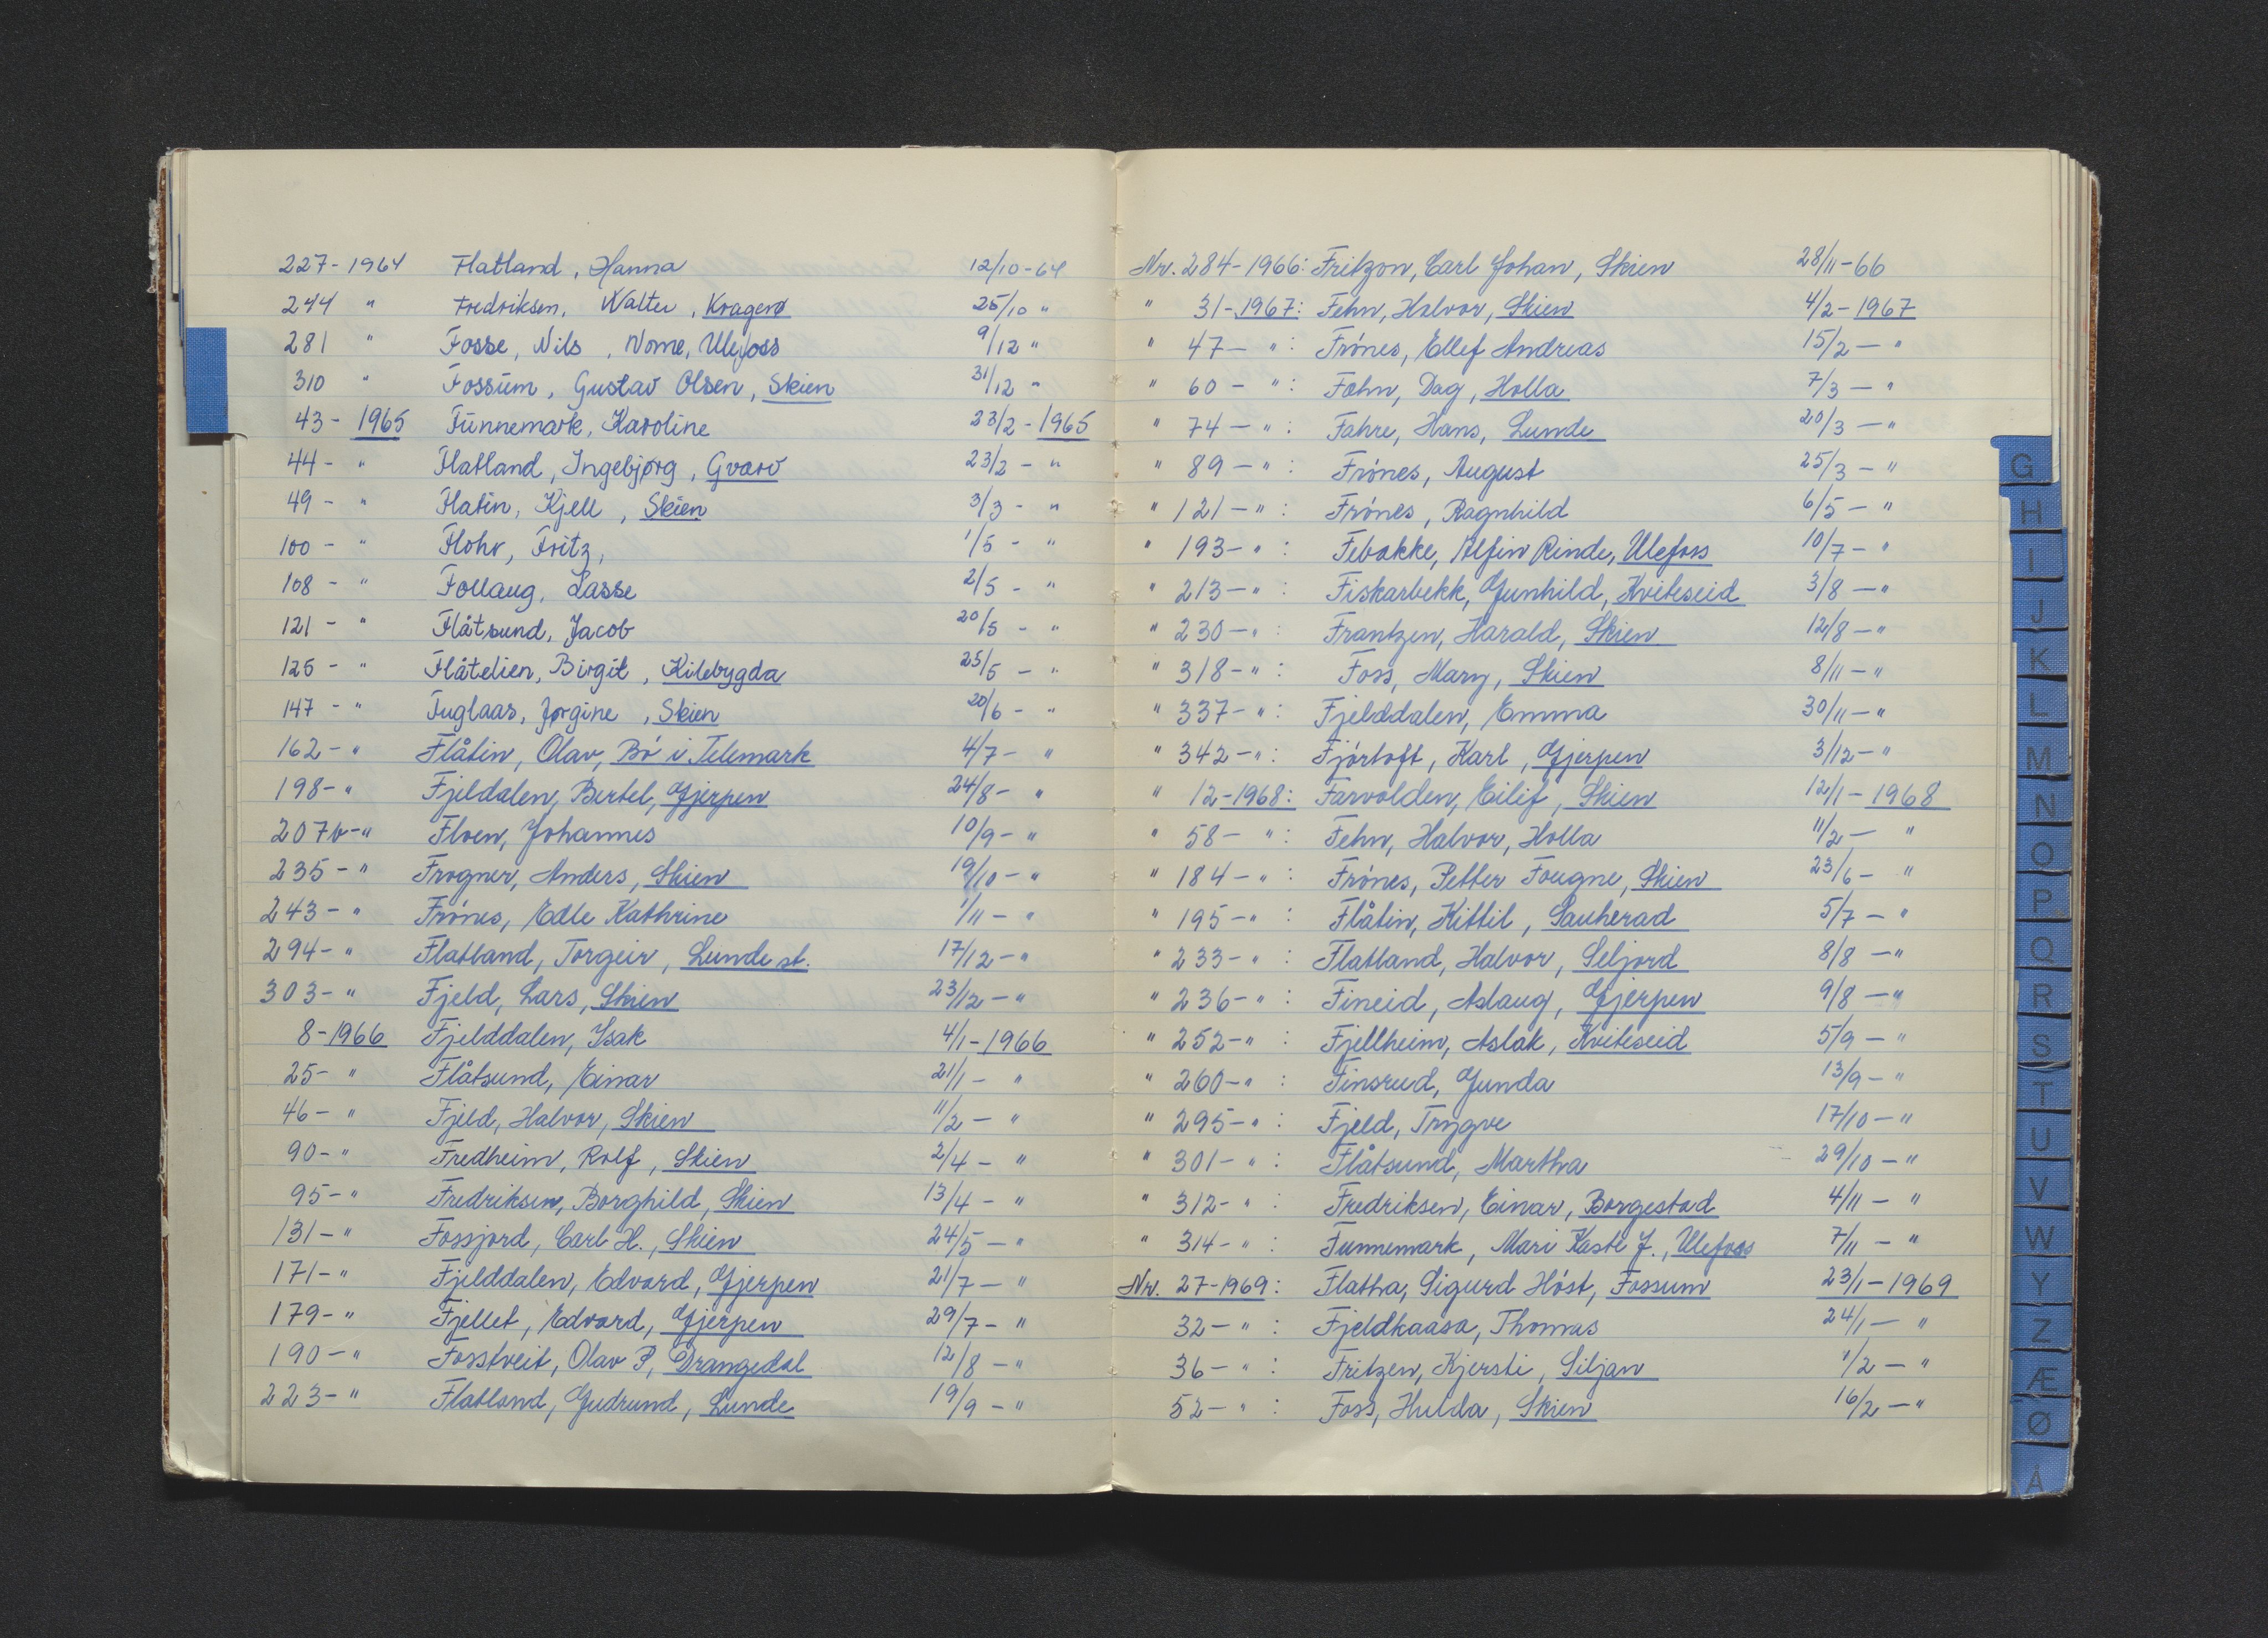 227 - 1964 Flatland, Hanna 12/10-64
244 " Fredriksen, Walter, Kragerø 25/10 "
281 " Fosse, Nils, Nome, Ulefoss 9/12 "
310 " Fossum, Gustav Olsen, Skien 31/12 "
43 - 1965 Funnemark, Karoline 23/2 - 1965
44 - " Flatland, Ingebjørg, Gvarv 23/2 - "
49 - " Flatin, Kjell, Skien 3/3 - "
100 - " Flohr, Fritz, 1/5 - "
108 - " Follaug, Lasse 2/5 - "
121 - " Flåtsund, Jacob 20/5 - "
125 - " Flåtelien, Birgit, Kilebygda 25/5 - "
147 - " Fuglaas, Jørgine, Skien 20/6 - "
162 - " Flåtin, Olav, Bó i Telemark 4/7 - "
198 - " Fjeldalen, Bertel, Gjerpen 24/8 - "
207b - " Floen, Johannes 10/9 - "
235 - " Frogner, Anders, Skien 19/10 - "
243 - " Frónes, Edle Kathrine 1/11 - "
294 - " Flatland, Torgeir, Lunde st. 17/12 - "
303 - " Fjeld, Lars, Skien 23/12 - "
8 - 1966 Fjelddalen, Isak 4/1 - 1966
25 - " Flåtsund, Einar 21/1 - "
46 - " Fjeld, Halvor, Skien 11/2 - "
90 - " Fredheim, Rolf, Skien 2/4 - "
95 - " Fredriksen, Borghild, Skien 13/4 - "
131 - " Fossjord, Carl H., Skien 24/5 - "
171 - " Fjelddalen, Edvard, Gjerpen 21/7 - "
179 - " Fjellet, Edvard, Gjerpen 29/7 - "
190 - " Fosstveit, Olav P, Drangedal 12/8 - "
223 - " Flatland, Gudrund, Lunde 19/9 - "
Nr. 284 - 1966: Fritzon, Carl Johan, Skien 28/11-66
" 31 - 1967: Fehn, Halvor, Skien 4/2 - 1967
" 47 - ": Frónes, Ellef Andreas 15/2 - "
" 60 - ": Fæhn, Dag, Holla 7/3 - "
" 74 - ": Fahre, Hans, Lunde 20/3 - "
" 89 - ": Frónes, August 25/3 - "
" 121 - ": Frónes, Ragnhild 6/5 - "
" 193 - ": Febakke, Alfin Rinde, Ulefoss 10/7 - "
" 213 - ": Fiskarbekk, Gunhild, Kviteseid 3/8 - "
" 230 - ": Frantzen, Harald, Skien 12/8 - "
" 318 - ": Foss, Mary, Skien 8/11 - "
" 337 - ": Fjelddalen, Emma 30/11 - "
" 342 - ": Fjórtoft, Karl, Gjerpen 3/12 - "
" 12 - 1968: Farvolden, Eilif, Skien 12/1 - 1968
" 58 - ": Fehn, Halvor, Holla 11/2 - "
" 184 - ": Frónes, Petter Fougne, Skien 23/6 - "
" 195 - ": Flåtin, Kittil, Sauherad 5/7 - "
" 233 - ": Flatland, Halvor, Seljord 8/8 - "
" 236 - ": Fineid, Aslaug, Gjerpen 9/8 - "
" 252 - ": Fjellheim, Aslak, Kviteseid 5/9 - "
" 260 - ": Finsrud, Gunda 13/9 - "
" 295 - ": Fjeld, Trygve 17/10 - "
" 301 - ": Flåtsund, Martha 29/10 - "
" 312 - ": Fredriksen, Einar, Borgestad 4/11 - "
" 314 - ": Funnemark, Mari Kasté J., Ulefoss 7/11 - "
Nr. 27 - 1969: Flatha, Sigurd Hóst, Fossum 23/1 - 1969
32 - ": Fjeldkaasa, Thomas 24/1 - "
36 - ": Fritzen, Kjersti, Siljan 1/2 - "
52 - ": Foss, Hulda, Skien 16/2 - "
G
H
I
J
K
L
M
N
O
P
Q
R
S
T
U
V
W
Y
Z
Æ
Ø
Å